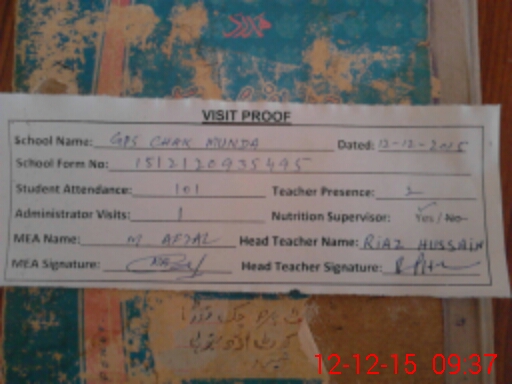 VISIT PROOF
School Name: GPS CHAK MUNDA Dated: 12-12-2015
School Form No: 1512120935495
Student Attendance: 101 Teacher Presence: 2
Administrator Visits: 1 Nutrition Supervisor: Yes / No
MEA Name: M. AFZAL Head Teacher Name: RIAZ HUSSAIN
MEA Signature: Head Teacher Signature:
12-12-15 09:37